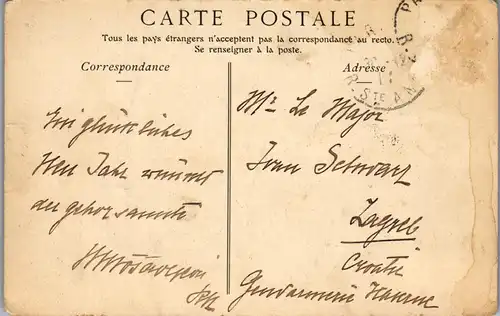 CARTE POSTALE
Tous les pays étrangers n'acceptent pas la correspondance au recto.
Se renseigner à la poste.
Correspondance
Adresse
Ein glückliches
Neu Jahr wünscht
der gehorsamste
Mr Le Major
Ivan Schwarz
Zagreb
Croatie
Gendarmerie Kaserne